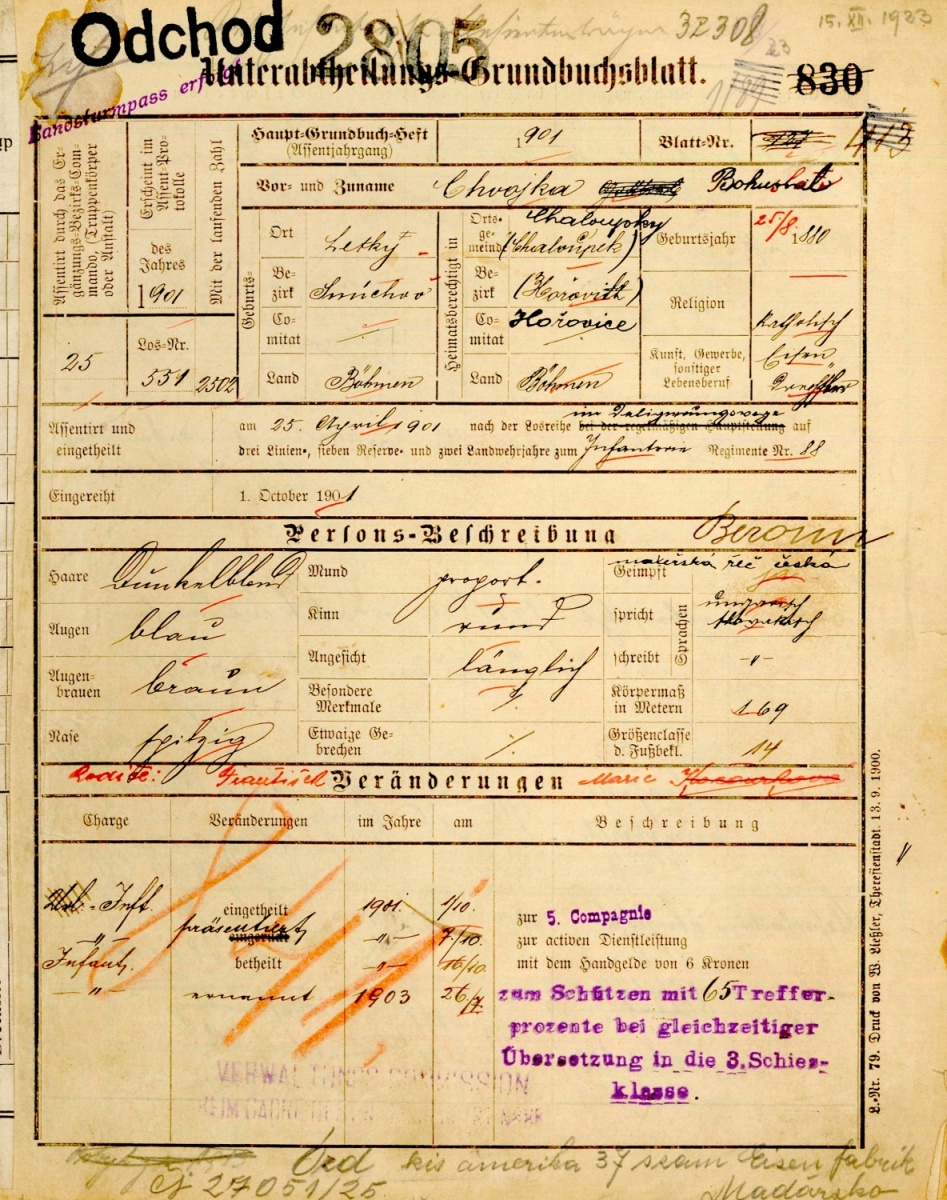 Odchod 2805 32308 15. XII. 1923
Landsturmpass erfolgt
Unterabtheilungs-Grundbuchsblatt. 830
Assentirt durch das Ergänzungs-Bezirks-Commando, (Truppenkörper oder Anstalt)
25
Erscheint im Assent-Protokolle
des Jahres
1901
Los-Nr.
551
Mit der laufenden Zahl
2502
Haupt-Grundbuch-Heft (Assentjahrgang) 1901 Blatt-Nr.
Vor- und Zuname Chvojka Bohuslav
Geburts-
Ort Letky
Bezirk Smichov
Comitat
Land Böhmen
Heimatsberechtigt in
Ortsgemeinde Chaloupky (Chaloupek)
Bezirk (Hořovitz)
Comitat Hořovice
Land Böhmen
Geburtsjahr 25/8. 1880
Religion katholisch
Kunst, Gewerbe, sonstiger Lebensberuf Eisen
Assentirt und eingetheilt
am 25. April 1901 nach der Losreihe bei der regelmäßigen Hauptstellung auf
drei Linien-, sieben Reserve- und zwei Landwehrjahre zum Infanterie Regimente Nr. 88
Eingereiht 1. October 1901
Persons-Beschreibung Beroun
Haare Dunkelblond
Augen blau
Augenbrauen braun
Nase spitzig
Mund proport.
Kinn rund
Angesicht länglich
Besondere Merkmale ./.
Etwaige Gebrechen ./.
mateřská řeč česká
Geimpft ja
spricht Sprachen ungarisch
schreibt -"-
Körpermaß in Metern 1·69
Größenclasse d. Fußbekl. 14
Rodiče: František Marie
Veränderungen
Charge Veränderungen im Jahre am Beschreibung
Inft. eingetheilt 1901. 1/10. zur 5. Compagnie
-"- präsentiert eingerückt -"- 7/10. zur activen Dienstleistung
Infant. betheilt -"- 16/10. mit dem Handgelde von 6 Kronen
-"- ernannt 1903 26/7. zum Schützen mit 65 Treffer-
prozente bei gleichzeitiger
Übersetzung in die 3. Schiess-
klasse.
VERWALTUNGS COMMISSION
L.-Nr. 79. Druck von W. Ließler, Theresienstadt. 13. 9. 1900.
kis amerika 37 szam Eisen fabrik
27051/25 Madársko